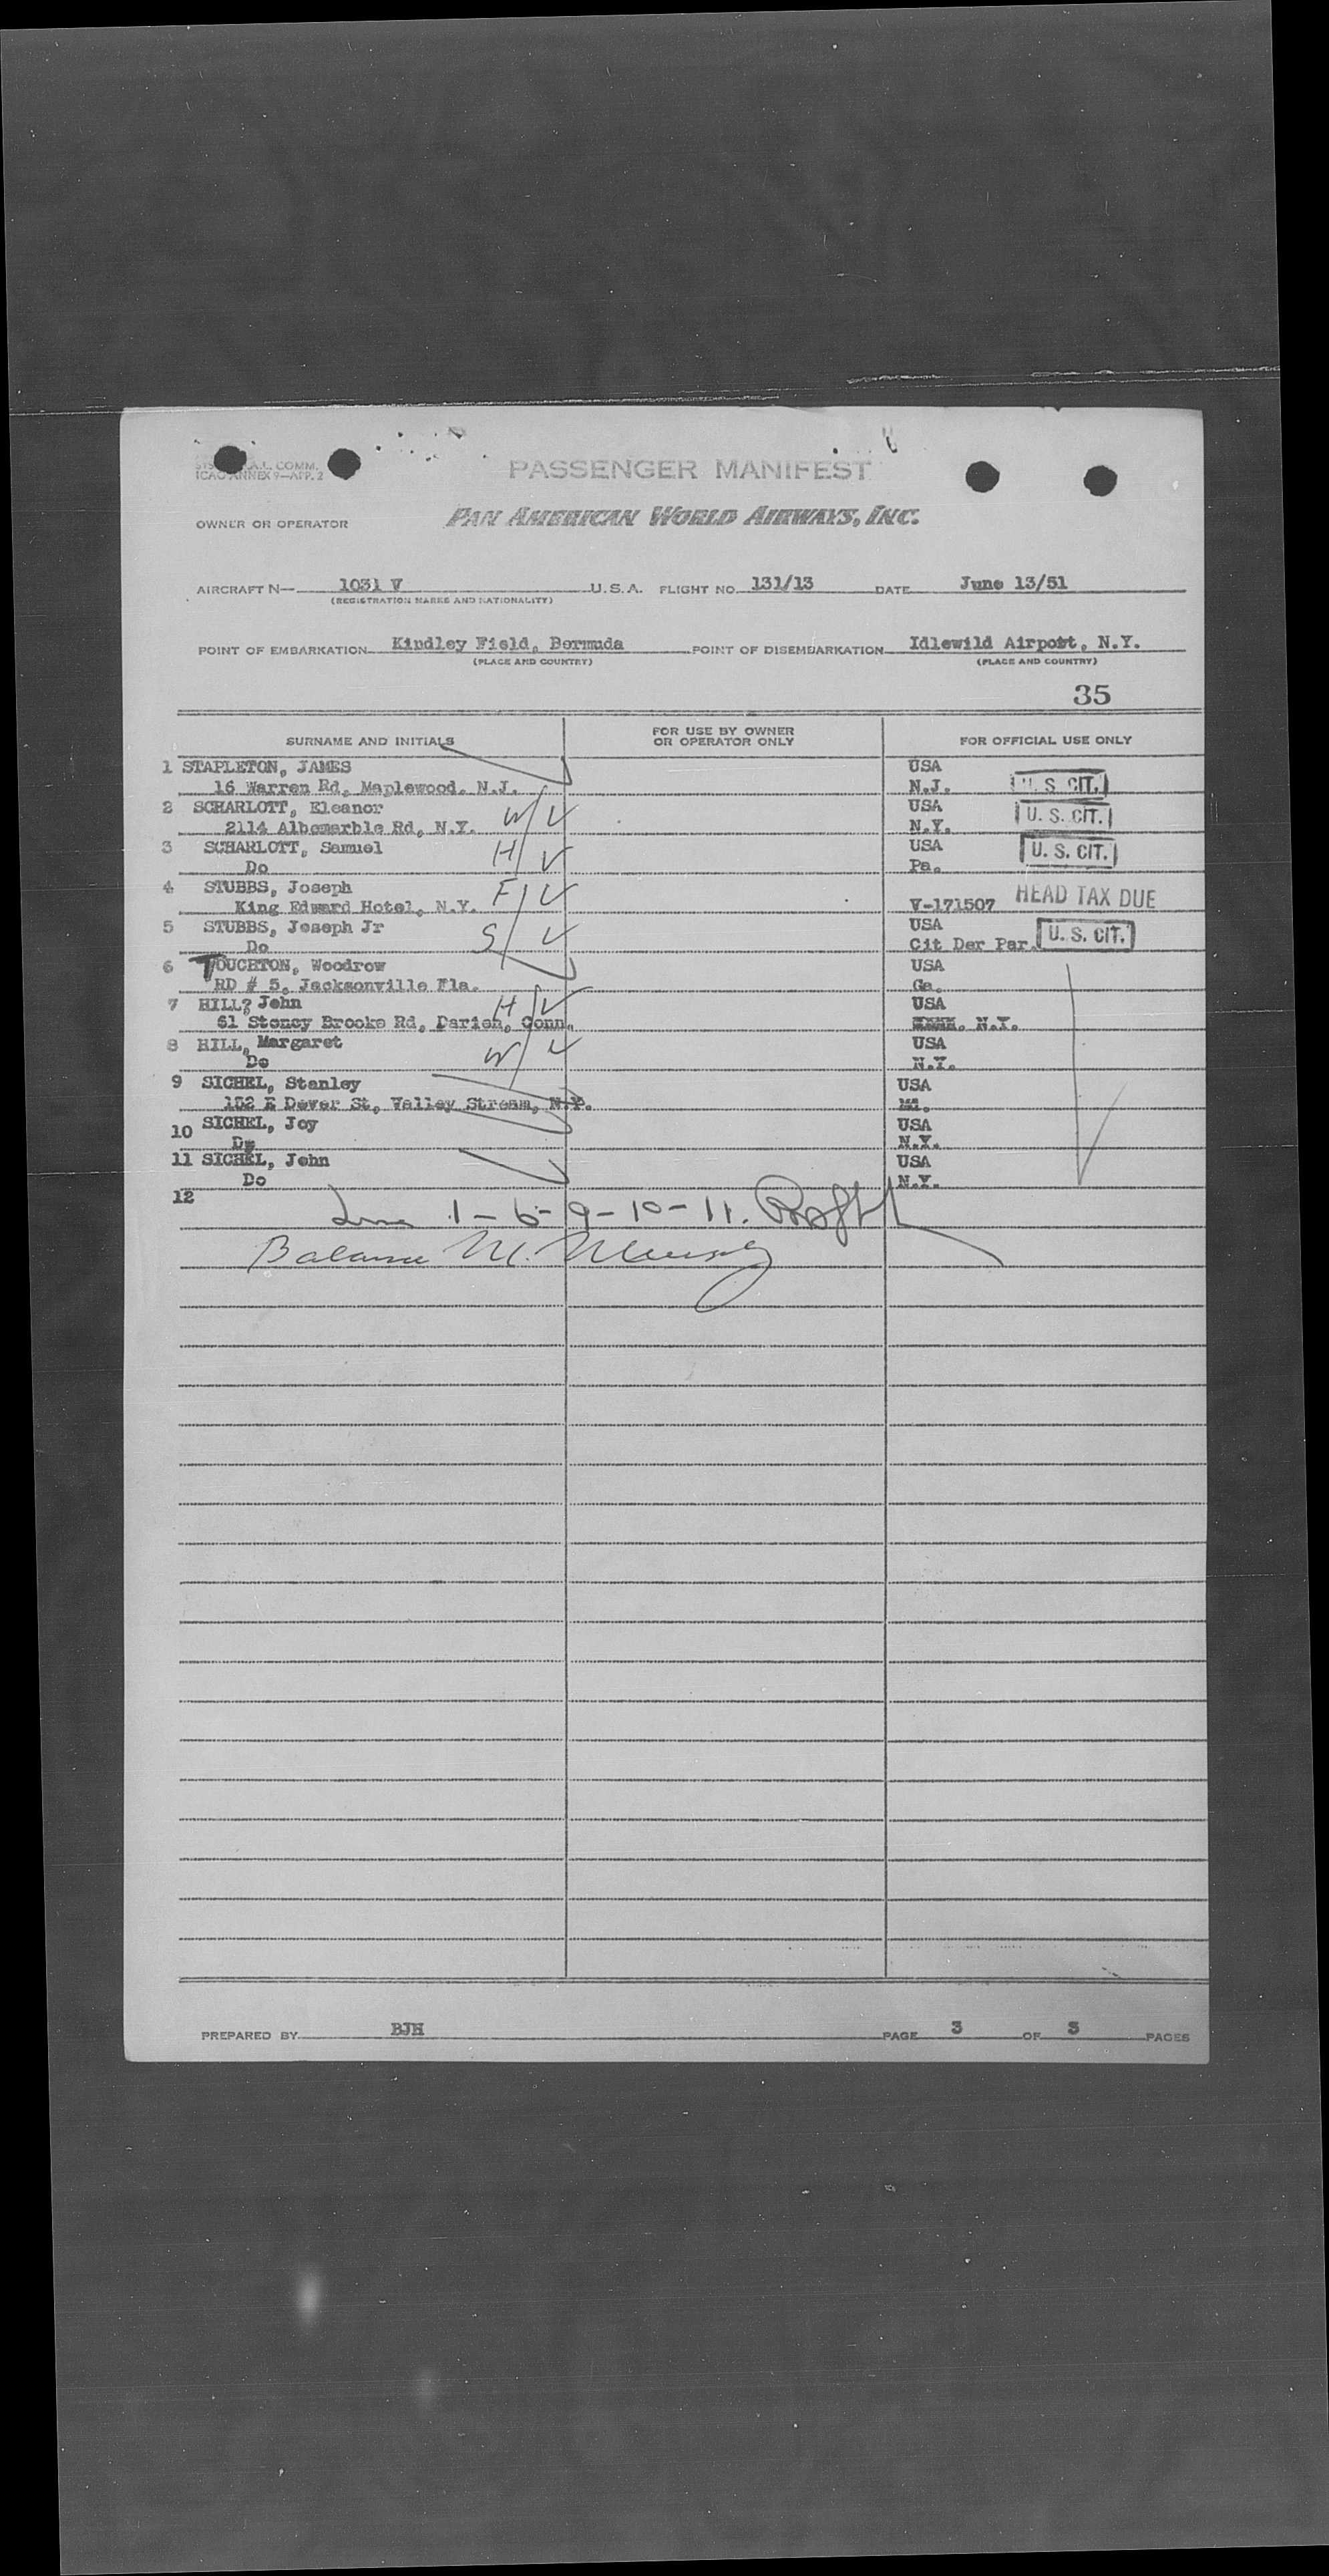 A.L. COMM.
ICAO ANNEX 9—APP. 2
PASSENGER MANIFEST
OWNER OR OPERATOR
PAN AMERICAN WORLD AIRWAYS, INC.
AIRCRAFT N— 1031 V U.S.A. FLIGHT NO. 131/13 DATE June 13/51
(REGISTRATION MARKS AND NATIONALITY)
POINT OF EMBARKATION Kindley Field, Bermuda POINT OF DISEMBARKATION Idlewild Airport, N.Y.
(PLACE AND COUNTRY) (PLACE AND COUNTRY)
35
SURNAME AND INITIALS FOR USE BY OWNER OR OPERATOR ONLY FOR OFFICIAL USE ONLY
1 STAPLETON, JAMES USA
16 Warren Rd, Maplewood, N.J. N.J. U. S. CIT.
2 SCHARLOTT, Eleanor USA
2114 Albemarble Rd, N.Y. W N.Y. U. S. CIT.
3 SCHARLOTT, Samuel H USA
Do Pa. U. S. CIT.
4 STUBBS, Joseph F
King Edward Hotel, N.Y. V-171507 HEAD TAX DUE
5 STUBBS, Joseph Jr S USA
Do Cit Der Par. U. S. CIT.
6 TOUCHTON, Woodrow USA
RD # 5, Jacksonville Fla. Ga.
7 HILL? John H USA
61 Stoney Brooke Rd, Darien, Conn. N.Y.
8 HILL, Margaret W USA
Do N.Y.
9 SICHEL, Stanley USA
102 E Dever St, Valley Stream, N.Y.
10 SICHEL, Joy USA
Do N.Y.
11 SICHEL, John USA
Do N.Y.
12
1-6-9-10-11.
Balance M.
PREPARED BY BJH PAGE 3 OF 3 PAGES